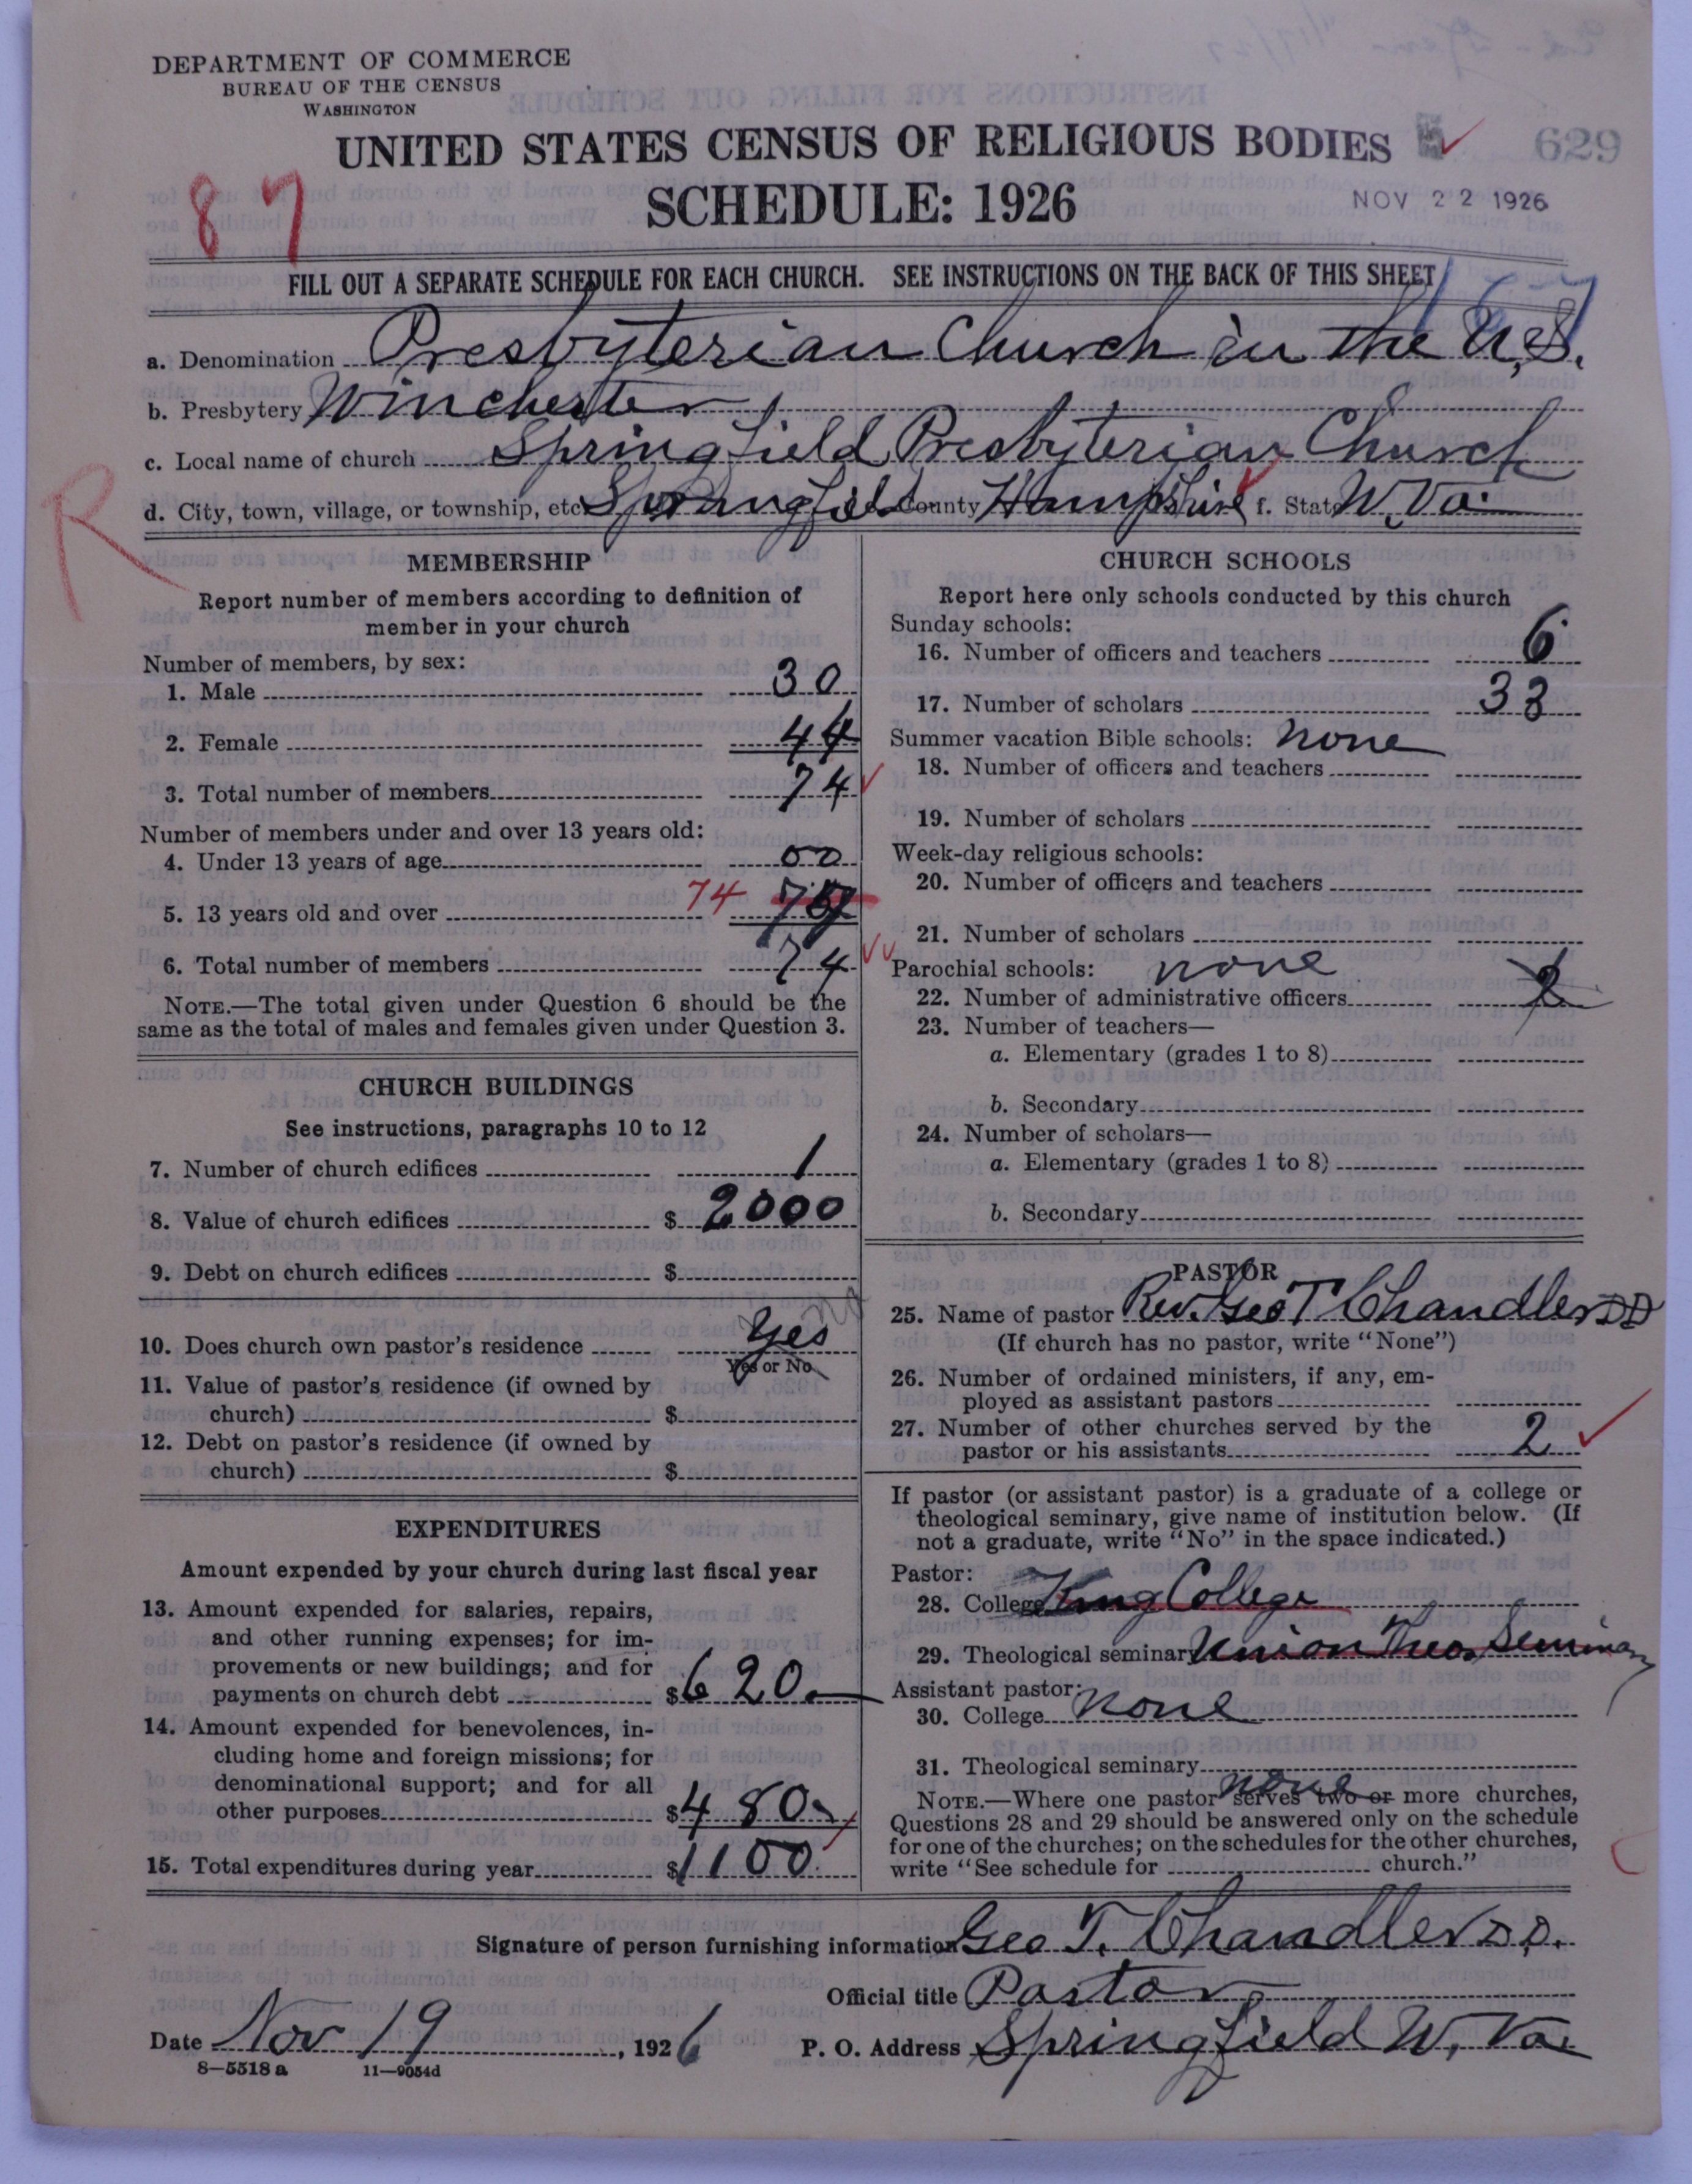 DEPARTMENT OF COMMERCE
BUREAU OF THE CENSUS
WASHINGTON
UNITED STATES CENSUS OF RELIGIOUS BODIES
629
87
SCHEDULE: 1926
NOV 22 1926
FILL OUT A SEPARATE SCHEDULE FOR EACH CHURCH. SEE INSTRUCTIONS ON THE BACK OF THIS SHEET
a. Denomination Presbyterian Church in the U.S.
b. Presbytery Winchester
c. Local name of church Springfield Presbyterian Church
R
d. City, town, village, or township, etc. Springfield County Hampshire f. State W. Va.
MEMBERSHIP
Report number of members according to definition of
member in your church
Number of members, by sex:
1. Male 30
2. Female 44
3. Total number of members 74
Number of members under and over 13 years old:
4. Under 13 years of age 00
5. 13 years old and over 74
6. Total number of members 74
NOTE.—The total given under Question 6 should be the
same as the total of males and females given under Question 3.
CHURCH BUILDINGS
See instructions, paragraphs 10 to 12
7. Number of church edifices 1
8. Value of church edifices $ 2000
9. Debt on church edifices $
10. Does church own pastor's residence Yes
Yes or No
11. Value of pastor's residence (if owned by
church) $
12. Debt on pastor's residence (if owned by
church) $
EXPENDITURES
Amount expended by your church during last fiscal year
13. Amount expended for salaries, repairs,
and other running expenses; for im-
provements or new buildings; and for
payments on church debt $ 620.—
14. Amount expended for benevolences, in-
cluding home and foreign missions; for
denominational support; and for all
other purposes $ 480.
15. Total expenditures during year $ 1100.
CHURCH SCHOOLS
Report here only schools conducted by this church
Sunday schools:
16. Number of officers and teachers 6
17. Number of scholars 33
Summer vacation Bible schools: none
18. Number of officers and teachers
19. Number of scholars
Week-day religious schools:
20. Number of officers and teachers
21. Number of scholars
Parochial schools: none
22. Number of administrative officers 2
23. Number of teachers—
a. Elementary (grades 1 to 8)
b. Secondary
24. Number of scholars—
a. Elementary (grades 1 to 8)
b. Secondary
PASTOR
25. Name of pastor Rev. Geo T Chandler DD
(If church has no pastor, write "None")
26. Number of ordained ministers, if any, em-
ployed as assistant pastors
27. Number of other churches served by the
pastor or his assistants 2
If pastor (or assistant pastor) is a graduate of a college or
theological seminary, give name of institution below. (If
not a graduate, write "No" in the space indicated.)
Pastor:
28. College King College
29. Theological seminary Union Theo. Seminary
Assistant pastor:
30. College none
31. Theological seminary none
NOTE.—Where one pastor serves two or more churches,
Questions 28 and 29 should be answered only on the schedule
for one of the churches; on the schedules for the other churches,
write "See schedule for church."
Signature of person furnishing information Geo T. Chandler D.D.
Official title Pastor
Date Nov 19, 1926 P. O. Address Springfield W. Va.
8—5518a 11—9054d